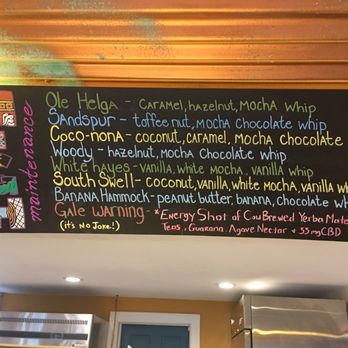 maintenance
Ole Helga - caramel, hazelnut, mocha whip
Sandspur - toffee nut, mocha chocolate whip
Coco-nona - coconut, caramel, mocha chocolate
Woody - hazelnut, mocha chocolate whip
White hayes - vanilla, white mocha, vanilla whip
South Swell - coconut, vanilla, white mocha, vanilla w
Banana Hammock - peanut butter, banana, chocolate wh
Gale Warning - *Energy Shot of Cow Brewed Yerba Mate
(it's No Joke!) Teas, Guarana, Agave Nectar + 33mg CBD